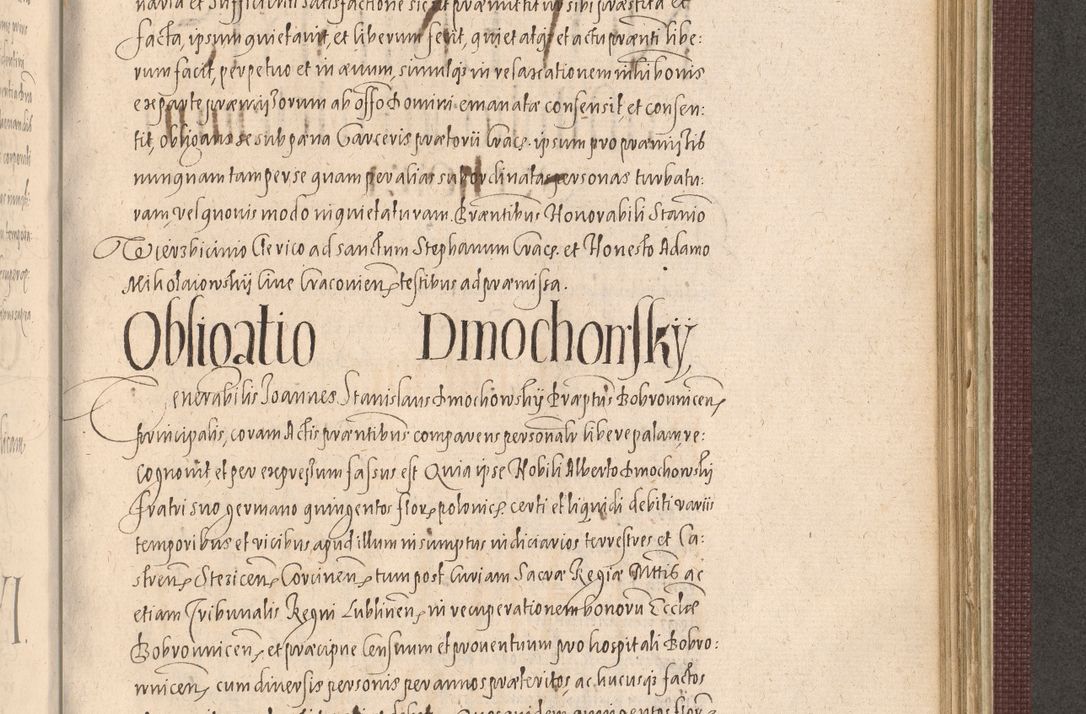 naria et sufficienti satisfactione sicut præmittitur sibi præstita et
facta, ipsum quietavit, et liberum fecit, quietatq, et actu prænti libe:
rum facit, perpetuo et in ævum, simulq, in relaxationem inhibonis
ex parte præmissorum ab offo Domini emanatæ consensit, et consen:
tit, obligans se sub pæna Carceris prætorii Crace. ipsum pro præmissib
nunquam tam per se quam per alias subordinatas personas turbatu:
rum, vel quovis modo inquietaturum. Præntibus Honorabili Stanio
Wierzbicinio Clerico ad sanctum Stephanum Crace. et Honesto Adamo
Mikolaiowskij Cive Cracovien, testibus ad præmissa.
Obligatio Dmochowsky,
Venerabilis Joannes Stanislaus Dmochowskij Præptus Bobrovnicen,
principalis, coram Actis præntibus comparens personalr libere palam, re:
cognovit et per expressum fassus est Quia ipse Nobili Alberto Dmochowskj
fratri suo germano quingentos flor, polonice. certi et liquidi debiti variis
temporibus et vicibus apud illum in sumptus iudiciarios terrestres et Ca:
stren, Stezicen, Corcinen, tum post Curiam Sacræ Regiæ Mttis ac
etiam Tribunalis Regni Lublinen, in recuperationem bonorū Ecclæ
Bobrovnicen, et præcipue Censuum et proventuum pro hospitali Bobro:
wnicen, cum diversis personis per annos præteritos, ac hucusq, factos